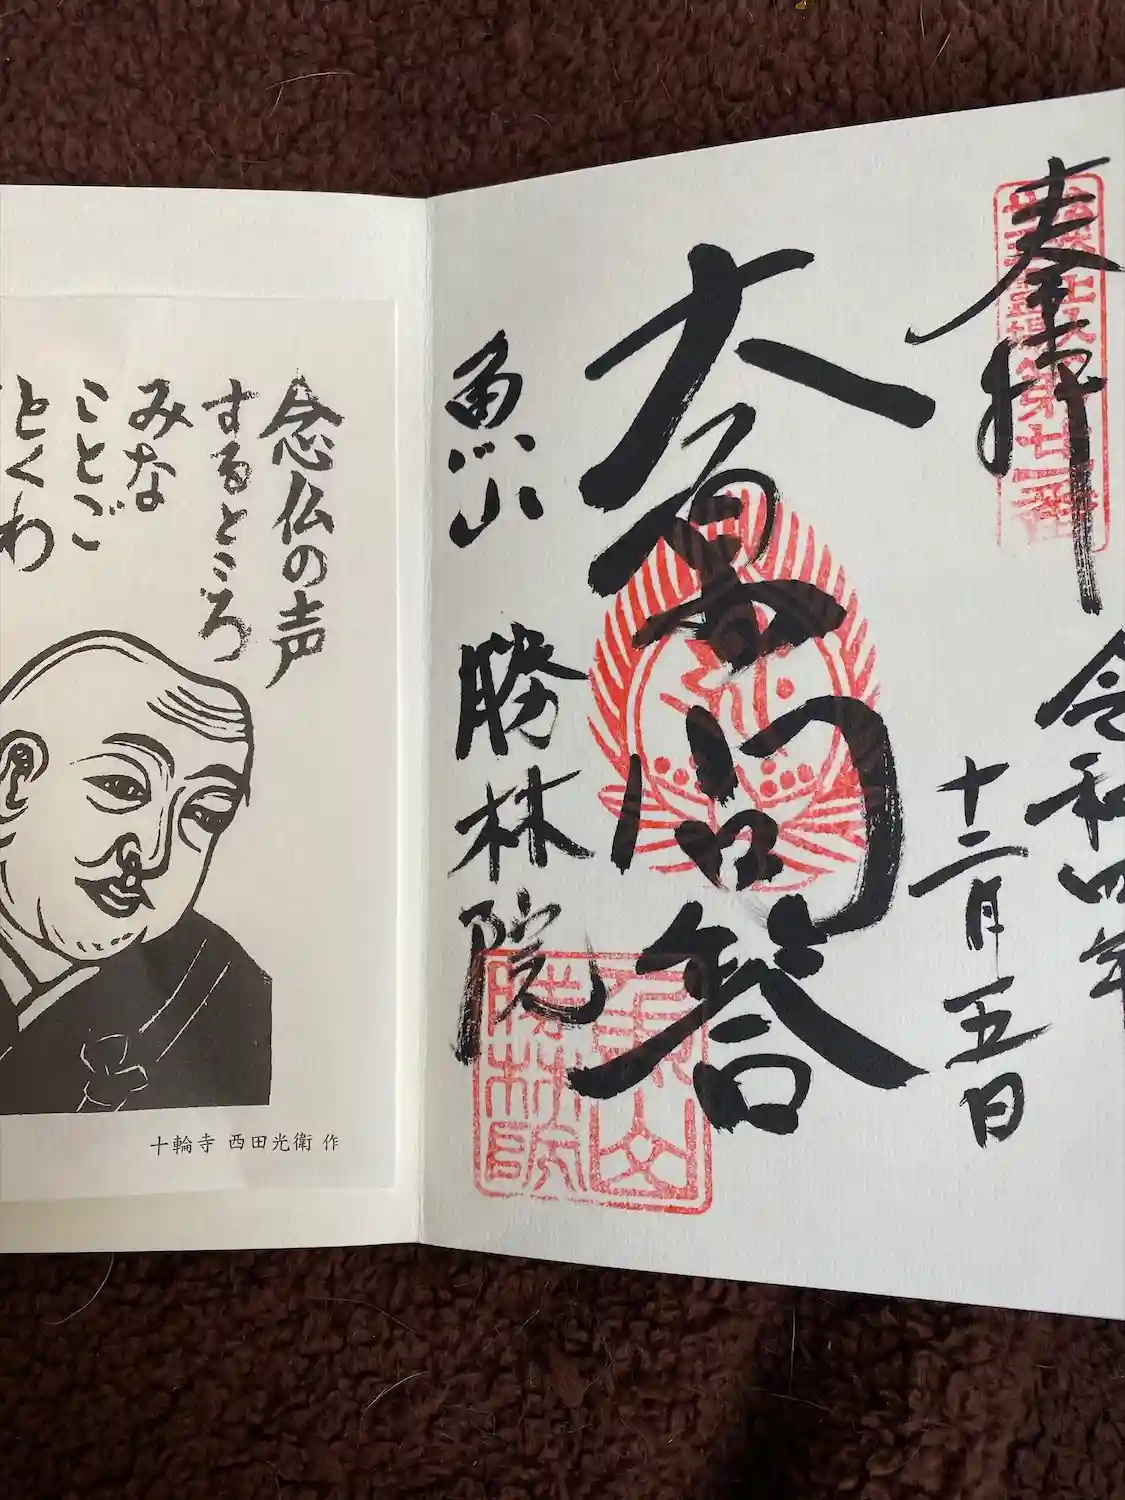 奉拝
第廿一番
令和四年
十二月五日
大原問答
魚山
勝林院
魚山
勝林院
念仏の声
するところ
みな
ことご
とくわ
十輪寺 西田光衛 作